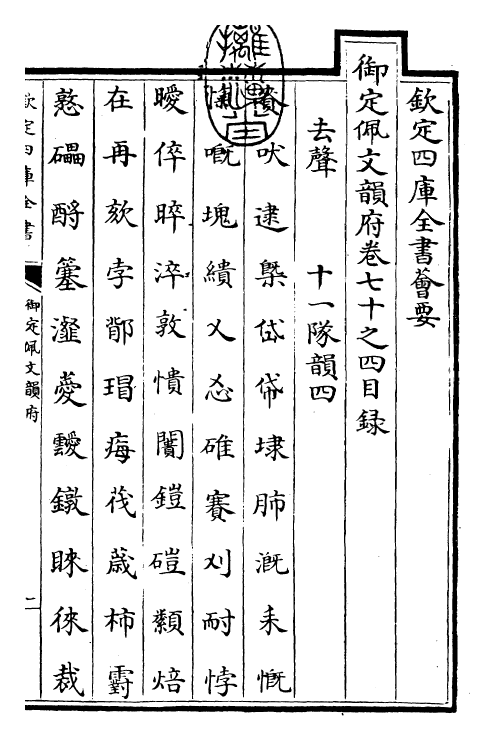 欽定四庫全書薈要
御定佩文韻府卷七十之四目録
去聲 十一隊韻四
賚吠逮槩岱帒埭肺溉耒慨
愾嘅塊繢乂碓賽刈耐悖
曖倅晬淬敦憒闠鎧磑纇焙
在再欬孛鄁瑁痗茷柿霴
憝礌酹簺瀣薆靉鐓睞徠裁
欽定四庫全書
御定佩文韻府
二